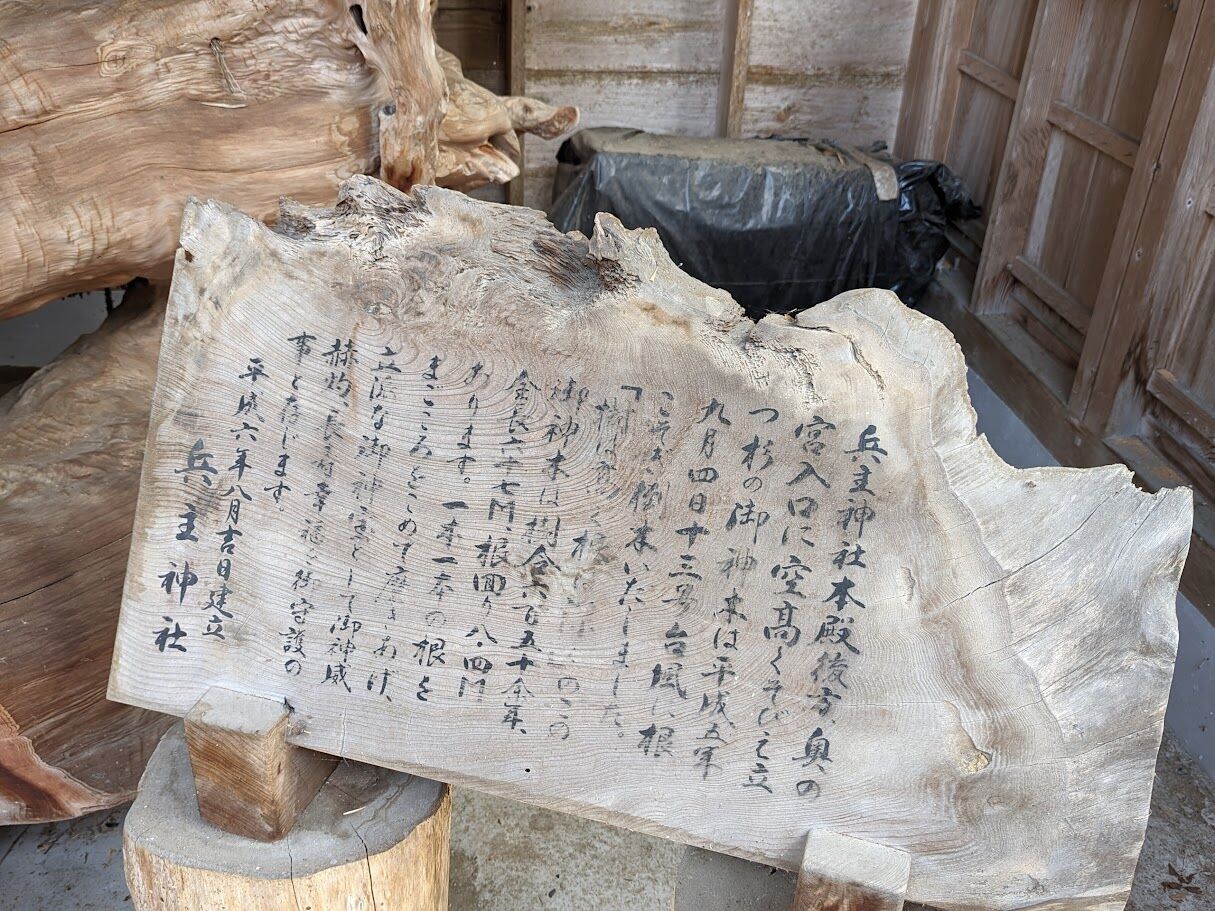 兵主神社本殿後方、奥の
宮入口に空高くそびえ立
つ杉の御神木は平成五年
九月四日十三号台風に根
こそぎ倒木いたしました。
「樹は の
御神木は樹令六百五十余年、
全長六十七M根回り八・四M
あります。一本一本の根を
まごころをこめて磨きあげ、
立派な御神宝として御神威
赫灼、長寿幸福を御守護の
事と存じます。
平成六年八月吉日建立
兵主神社